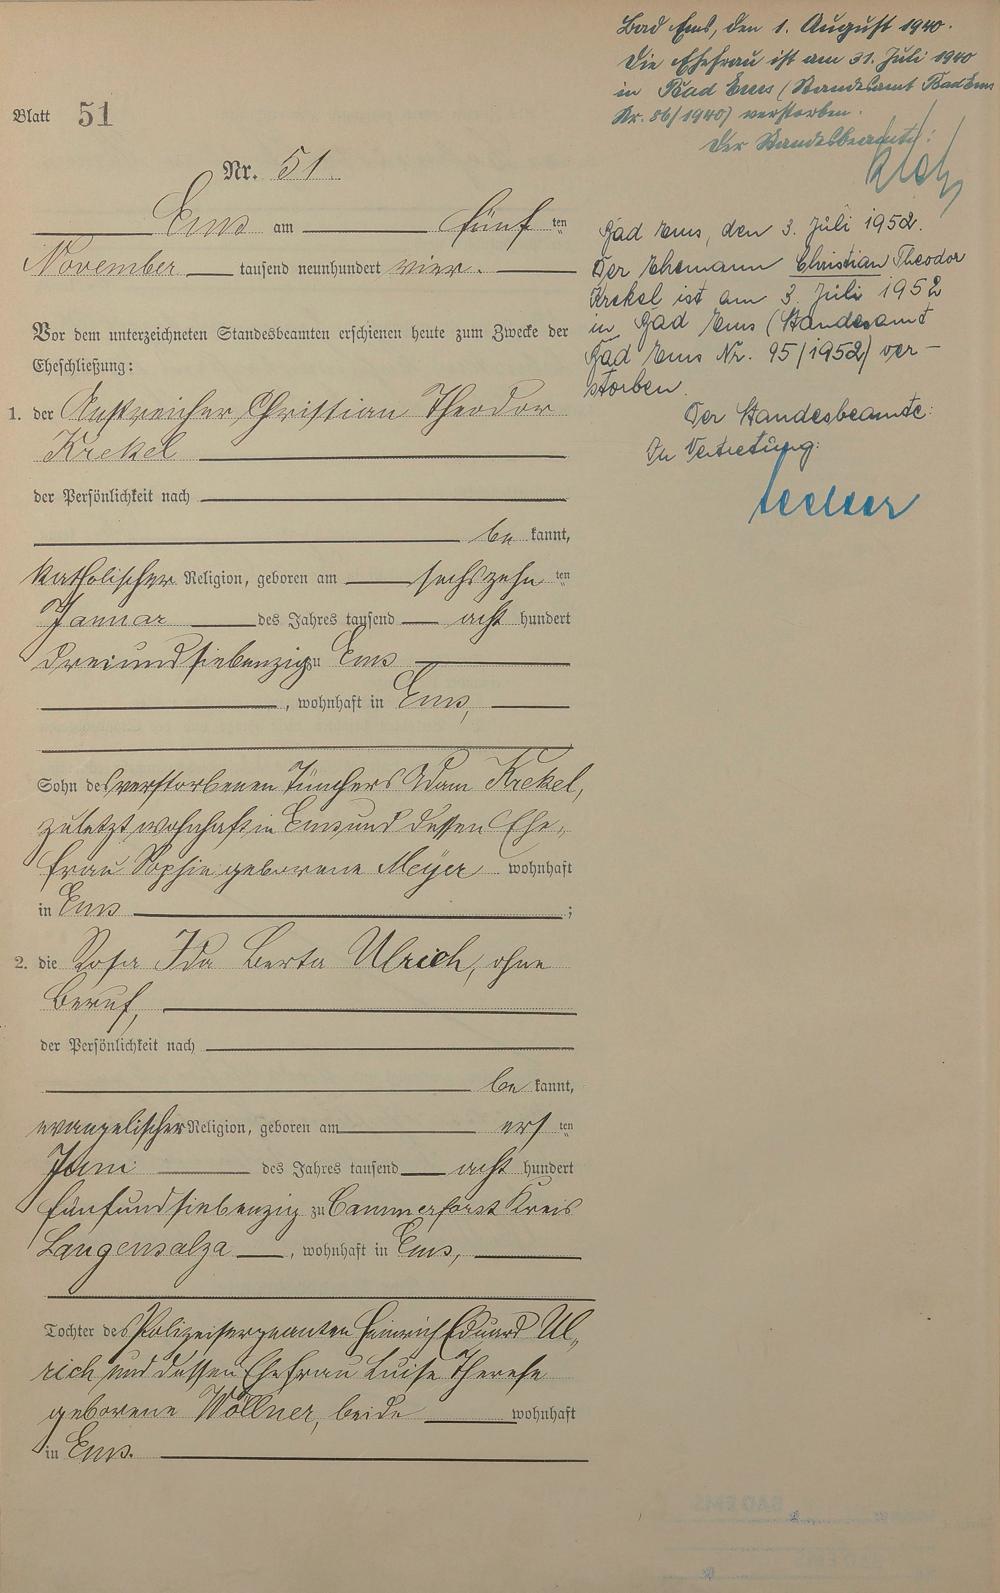 Blatt 51
Nr. 51.
Ems am fünf ten
November tausend neunhundert vier.
Vor dem unterzeichneten Standesbeamten erschienen heute zum Zwecke der
Eheschließung:
1. der Anstreicher Christian Theodor
Krekel
der Persönlichkeit nach
be kannt,
katholischer Religion, geboren am sechszehn ten
Januar des Jahres tausend acht hundert
dreiundsiebenzig zu Ems
, wohnhaft in Ems,
Sohn des verstorbenen Tünchers Adam Krekel,
zuletzt wohnhaft in Ems und dessen Ehe-
frau Sophie geborene Meyer wohnhaft
in Ems ;
2. die Rosa Ida Berta Ulrich, ohne
Beruf,
der Persönlichkeit nach
be kannt,
evangelischer Religion, geboren am ers ten
Juni des Jahres tausend acht hundert
fünfundsiebenzig zu Cammerforst Kreis
Langensalza , wohnhaft in Ems,
Tochter des Polizeisergeanten Heinrich Eduard Ul-
rich und dessen Ehefrau Luise Therese
geborene Wöllner, beide wohnhaft
in Ems.
Bad Ems, den 1. August 1940.
Die Ehefrau ist am 31. Juli 1940
in Bad Ems (Standesamt Bad Ems
Nr. 86/1940) verstorben.
Der Standesbeamte:
Bad Ems, den 3. Juli 1952.
Der Ehemann Christian Theodor
Krekel ist am 3. Juli 1952
in Bad Ems (Standesamt
Bad Ems Nr. 95/1952) ver-
storben.
Der Standesbeamte:
In Vertretung: